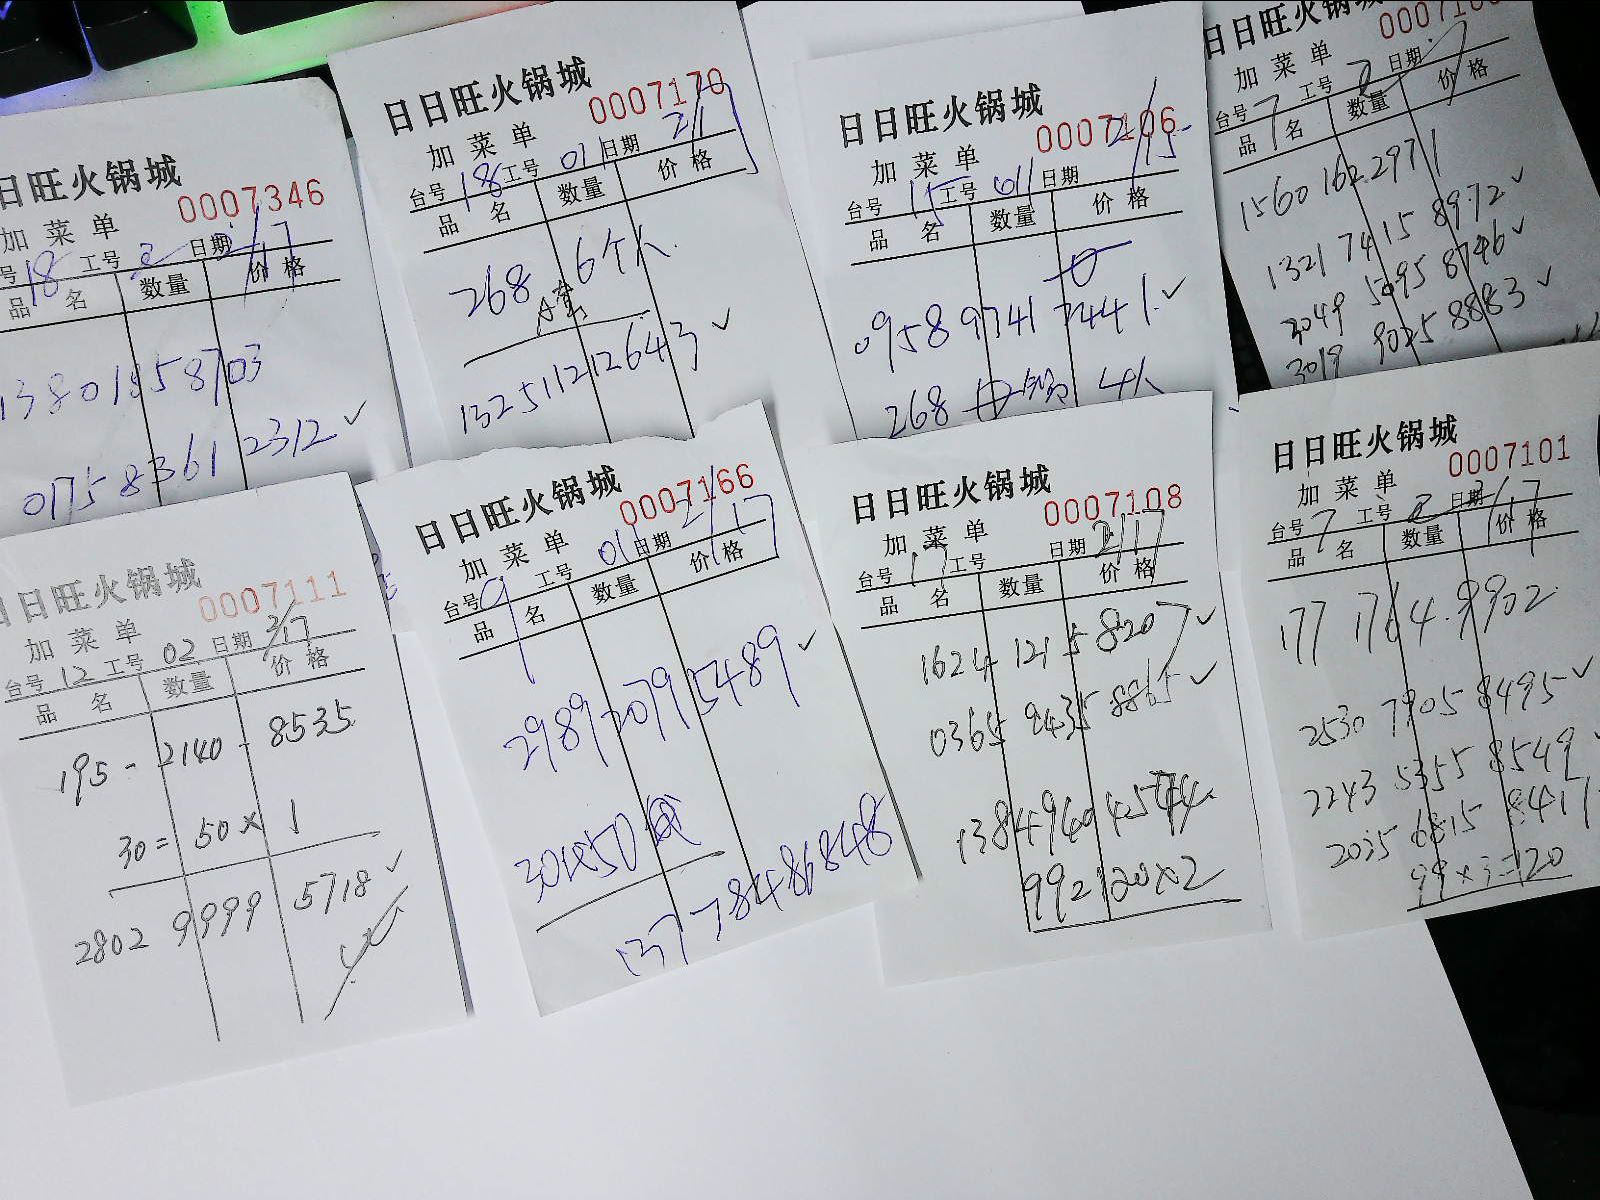 日旺火锅城
0007346
加菜单
号 18 工号 2 日期 2/17
品名 数量 价格
13801858703
0758 8361 2312 ✓
日日旺火锅城
0007170
加菜单
台号 18 工号 01 日期
品名 数量 价格
268 6个人
A套
13251121 2643 ✓
日日旺火锅城
0007106
加菜单
台号 15 工号 01 日期 2/15
品名 数量 价格
0958 9741 7441 ✓
268 4人
日日旺火锅城
加菜单
台号 7 工号 2 日期
品名 数量 价格
1560 162 2971
1321 7415 8972 ✓
3049 5095 8746 ✓
3019 9025 8883 ✓
日日旺火锅城
0007111
加菜单
台号 12 工号 02 日期 2/17
品名 数量 价格
195 - 2140 - 8535
30=50×1
2802 9999 5718 ✓
日日旺火锅城
0007166
加菜单
台号 9 工号 01 日期 2/17
品名 数量 价格
2989 2079 5489 ✓
30收50
13778486848
日日旺火锅城
0007108
加菜单
台号 17 工号 日期 2/17
品名 数量 价格
1624 1215 8207 ✓
0365 9435 8865 ✓
1384940
992 120×2
日日旺火锅城
0007101
加菜单
台号 7 工号 2 日期 2/17
品名 数量 价格
177 1764 9902
2530 7905 8495 ✓
2243 5355 8549 ✓
2035 6815 8417
99×3=120